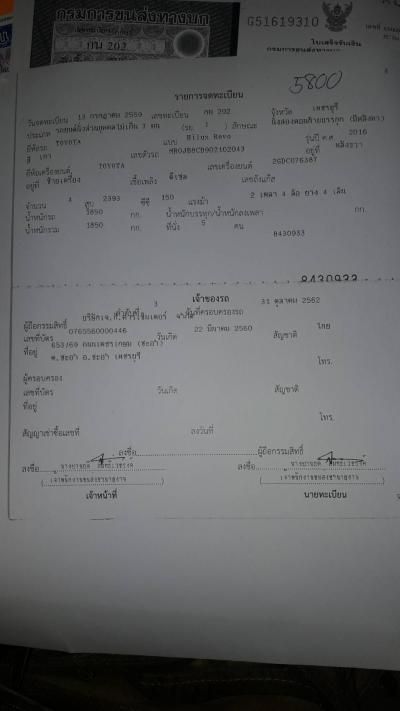 กรมการขนส่งทางบก
G51619310
กน 202
ใบเสร็จรับเงิน
กรมการขนส่งทางบก
5800
รายการจดทะเบียน
วันจดทะเบียน 13 กรกฎาคม 2559 เลขทะเบียน กน 202 จังหวัด เพชรบุรี
ประเภท รถยนต์นั่งส่วนบุคคลไม่เกิน 7 คน (รย. 1 ) ลักษณะ นั่งสองตอนท้ายบรรทุก (มีหลังคา)
ยี่ห้อรถ TOYOTA แบบ Hilux Revo รุ่นปี ค.ศ. 2016
สี เทา เลขตัวรถ MR0JB8CD902102043 อยู่ที่
ยี่ห้อเครื่องยนต์ TOYOTA เลขเครื่องยนต์ 2GDC076387
อยู่ที่ เชื้อเพลิง ดีเซล เลขถังแก๊ส
จำนวน 4 สูบ 2393 ซีซี 150 แรงม้า 2 เพลา 4 ล้อ ยาง 4 เส้น
น้ำหนักรถ 1850 กก. น้ำหนักบรรทุก/น้ำหนักลงเพลา กก.
น้ำหนักรวม 1850 กก. ที่นั่ง 5 คน
8430933
เจ้าของรถ
ลำดับที่ 3 วันที่ครอบครองรถ 31 ตุลาคม 2562
ผู้ถือกรรมสิทธิ์
เลขที่บัตร 0765560000446 วันเกิด 22 มีนาคม 2560 สัญชาติ ไทย
ที่อยู่ 653/69 ถนนเพชรเกษม (ชะอำ)
ต.ชะอำ อ.ชะอำ เพชรบุรี โทร.
ผู้ครอบครอง
เลขที่บัตร วันเกิด สัญชาติ
ที่อยู่
โทร.
สัญญาเช่าซื้อเลขที่ ลงวันที่
ลงชื่อ ผู้ถือกรรมสิทธิ์
ลงชื่อ ลงชื่อ
เจ้าหน้าที่ นายทะเบียน